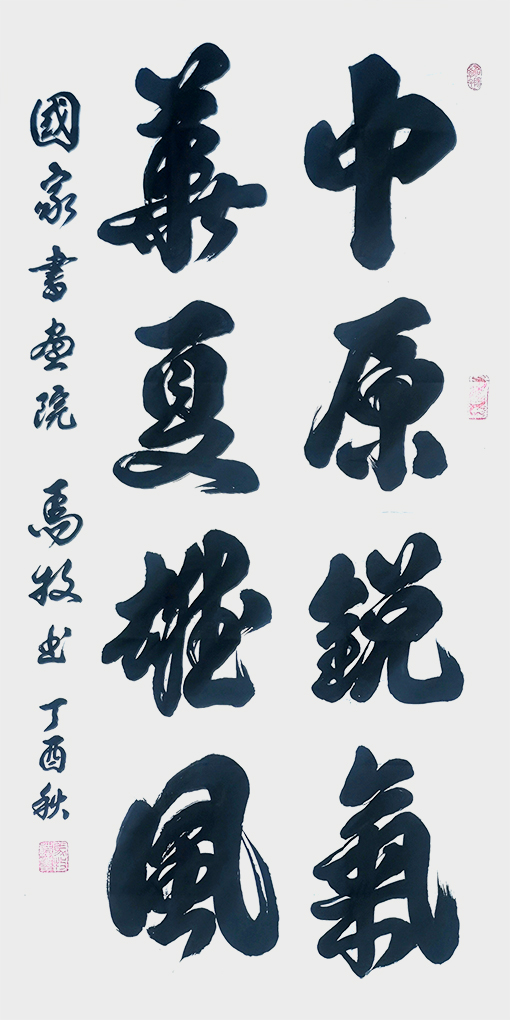 中原銳氣
華夏雄風
國家書畫院 馬牧书 丁酉秋